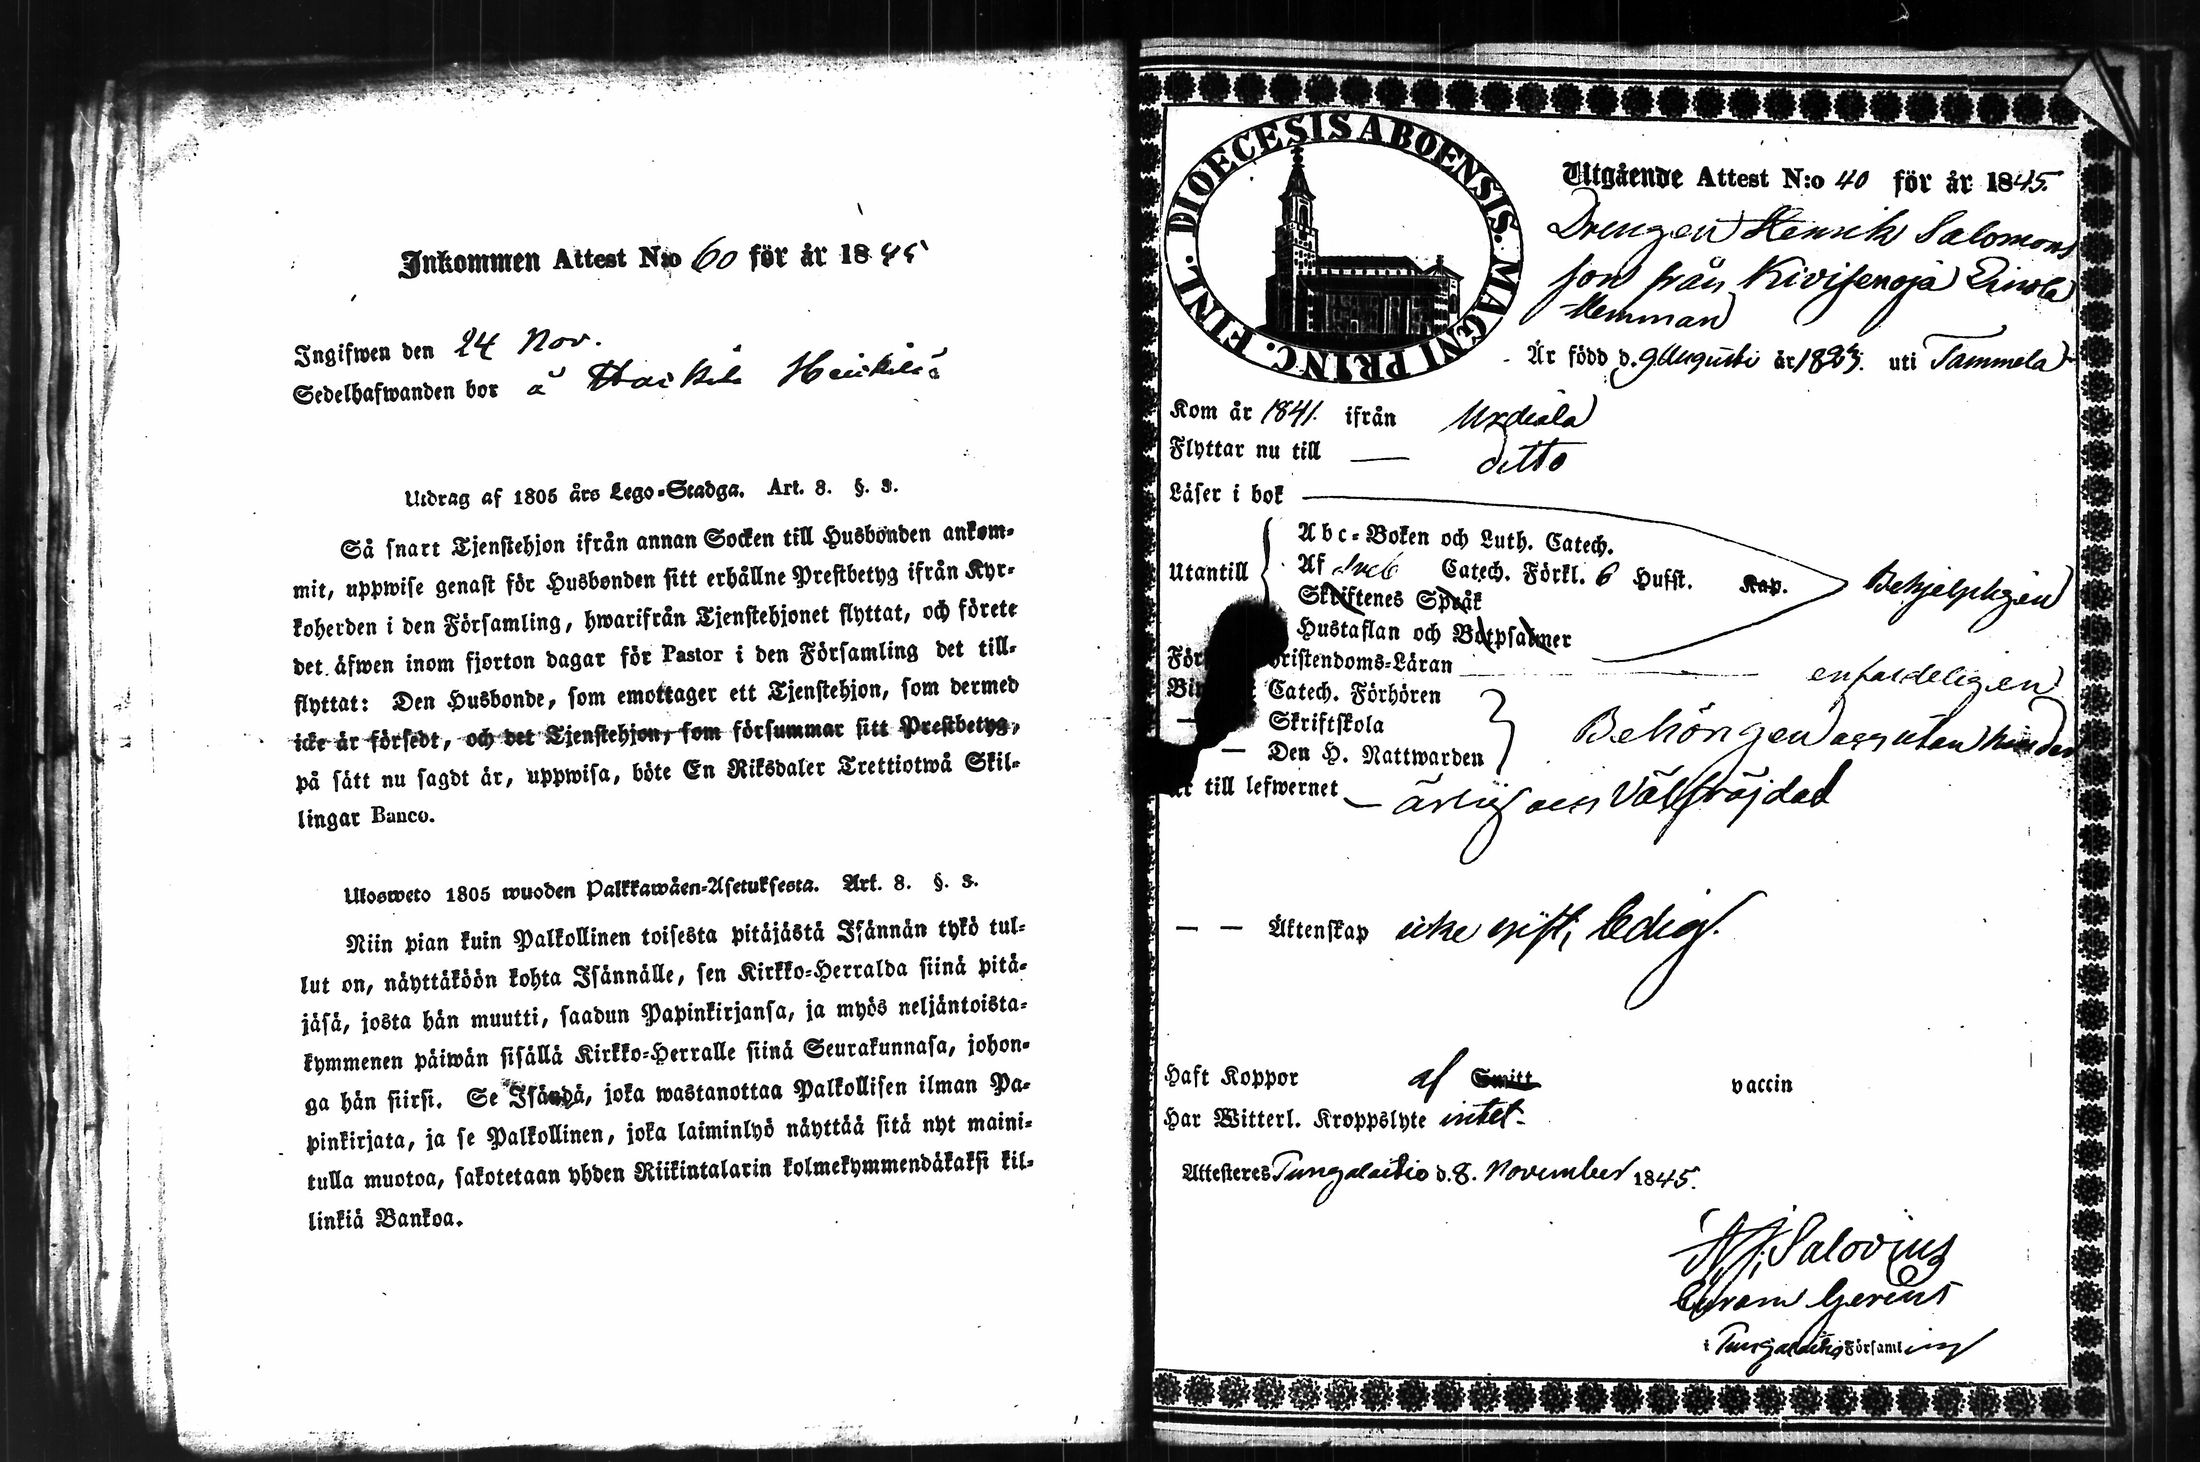 Inkommen Attest N:o 60 för år 1845
Ingifwen den 24 Nov.
Sedelhafwanden bor å Heikilä
Utdrag af 1805 års Lego-Stadga. Art. 8. §. 3.
Så snart Tjenstehjon ifrån annan Socken till Husbonden ankom-
mit, uppwise genast för Husbonden sitt erhållne Prestbetyg ifrån Kyr-
koherden i den Församling, hwarifrån Tjenstehjonet flyttat, och förete
det äfwen inom fjorton dagar för Pastor i den Församling det till-
flyttat: Den Husbonde, som emottager ett Tjenstehjon, som dermed
icke är försedt, och det Tjenstehjon, som försummar sitt Prestbetyg,
på sätt nu sagdt är, uppwisa, böte En Riksdaler Trettiotwå Skil-
lingar Banco.
Ulosweto 1805 wuoden Palkkawäen-Asetuksesta. Art. 8. §. 3.
Niin pian kuin Palkollinen toisesta pitäjästä Isännän tykö tul-
lut on, näyttäköön kohta Isännälle, sen Kirkko-Herralda siinä pitä-
jäsä, josta hän muutti, saadun Papinkirjansa, ja myös neljäntoista-
kymmenen päiwän sisällä Kirkko-Herralle siinä Seurakunnasa, johon-
ga hän siirsi. Se Isändä, joka wastanottaa Palkollisen ilman Pa-
pinkirjata, ja se Palkollinen, joka laiminlyö näyttää sitä nyt maini-
tulla muotoa, sakotetaan yhden Riikintalarin kolmekymmendäkaksi kil-
linkiä Bankoa.
DIOECESIS ABOENSIS. MAGNI PRINC. FINL.
Utgående Attest N:o 40 för år 1845.
Drengen Henrik Salomons
son från Kivisenoja
Hemman
Är född d. 9 Augusti år 1823. uti Tammela
Kom år 1841. ifrån Urdiala
Flyttar nu till — ditto
Läser i bok
Utantill
Abc-Boken och Luth. Catech.
Af Sveb Catech. Förkl. 6 Hufst. Kap. Behjelpligen
Skriftenes Språk
Hustaflan och Botpsalmer
För ristendoms-Läran enfaldeligen
Bi Catech. Förhören
— Skriftskola Behörigen och utan hinder
— Den H. Nattwarden
Är till lefwernet — ärlig och Välfräjdad
— — Äktenskap icke gift, ledig.
Haft Koppor af Smitt vaccin
Har Witterl. Kroppslyte intet-
Attesteres Tungalaitio d. 8. November 1845.
Salovius
Curam Gerens
i Tungalaitio Församling